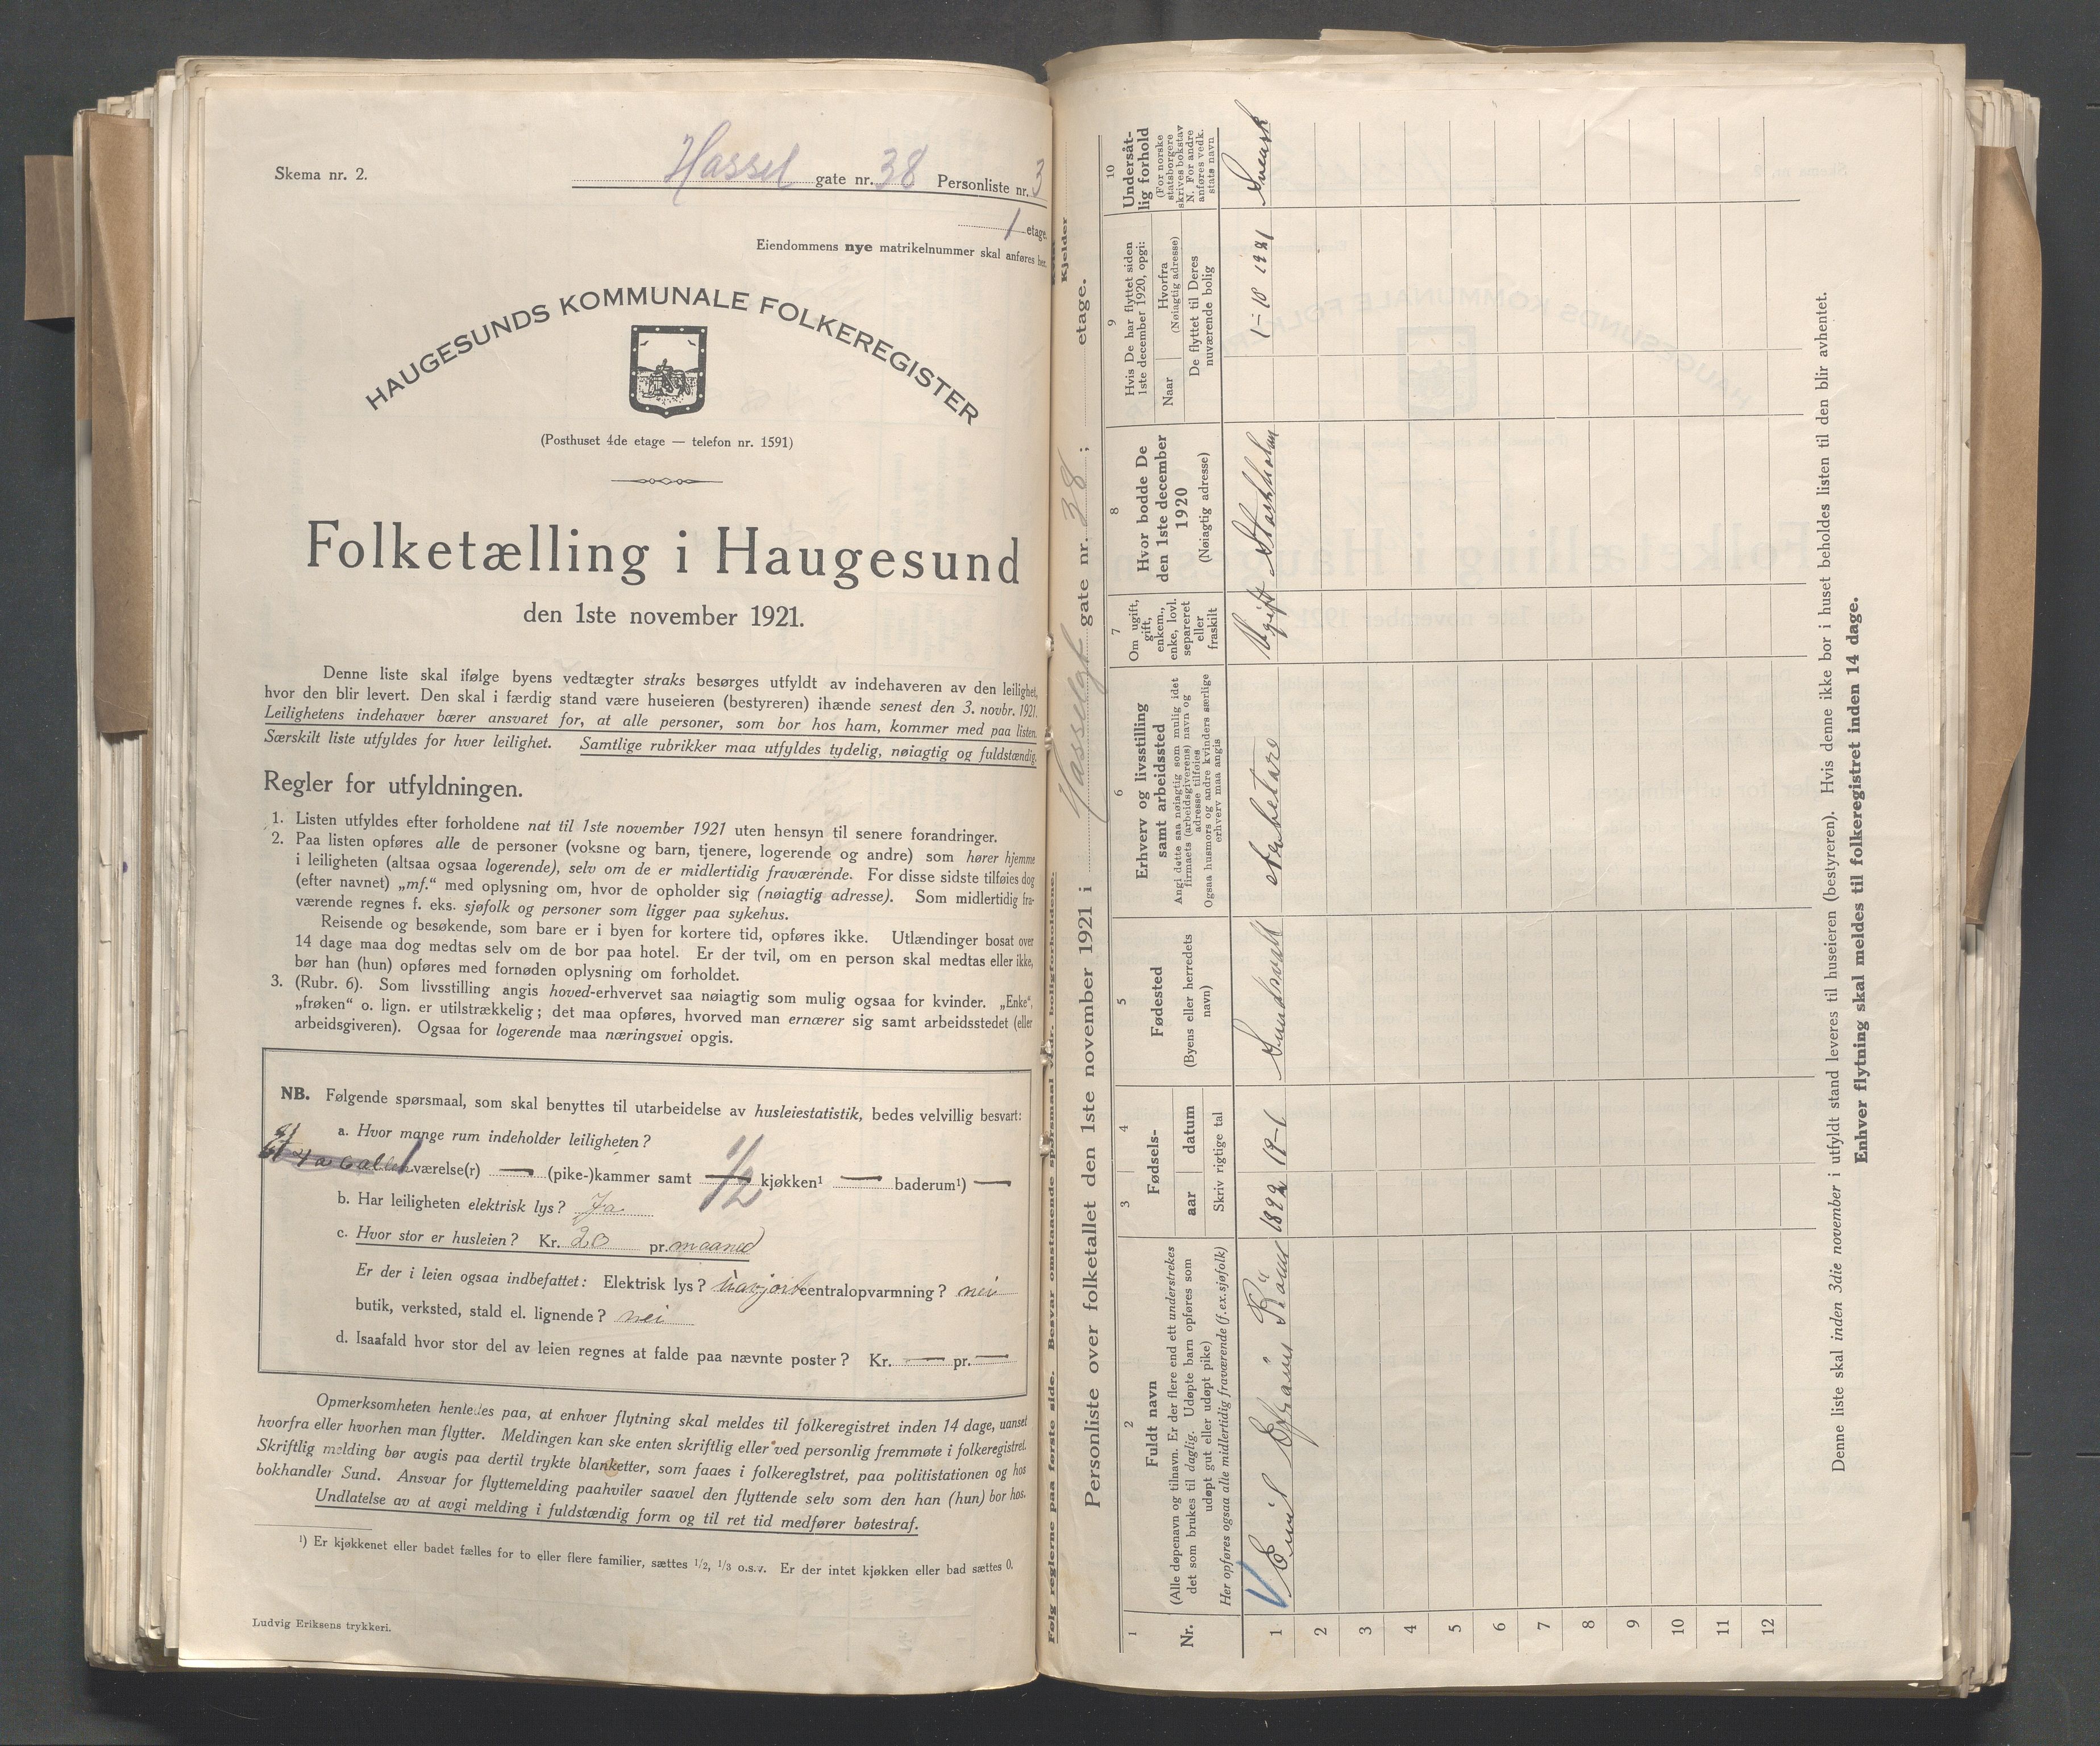 Skema nr. 2.
Hassel gate nr. 38 Personliste nr. 3
1 etage.
Eiendommens nye matrikelnummer skal anføres her.
HAUGESUNDS KOMMUNALE FOLKEREGISTER
(Posthuset 4de etage — telefon nr. 1591)
Folketælling i Haugesund
den 1ste november 1921.
Denne liste skal ifølge byens vedtægter straks besørges utfyldt av indehaveren av den leilighet,
hvor den blir levert. Den skal i færdig stand være huseieren (bestyreren) ihænde senest den 3. novbr. 1921.
Leilighetens indehaver bærer ansvaret for, at alle personer, som bor hos ham, kommer med paa listen.
Særskilt liste utfyldes for hver leilighet. Samtlige rubrikker maa utfyldes tydelig, nøiagtig og fuldstændig.
Regler for utfyldningen.
1. Listen utfyldes efter forholdene nat til 1ste november 1921 uten hensyn til senere forandringer.
2. Paa listen opføres alle de personer (voksne og barn, tjenere, logerende og andre) som hører hjemme
i leiligheten (altsaa ogsaa logerende), selv om de er midlertidig fraværende. For disse sidste tilføies dog
(efter navnet) „mf.“ med oplysning om, hvor de opholder sig (nøiagtig adresse). Som midlertidig fra-
værende regnes f. eks. sjøfolk og personer som ligger paa sykehus.
Reisende og besøkende, som bare er i byen for kortere tid, opføres ikke. Utlændinger bosat over
14 dage maa dog medtas selv om de bor paa hotel. Er der tvil, om en person skal medtas eller ikke,
bør han (hun) opføres med fornøden oplysning om forholdet.
3. (Rubr. 6). Som livsstilling angis hoved-erhvervet saa nøiagtig som mulig ogsaa for kvinder. „Enke“,
„frøken“ o. lign. er utilstrækkelig; det maa opføres, hvorved man ernærer sig samt arbeidsstedet (eller
arbeidsgiveren). Ogsaa for logerende maa næringsvei opgis.
NB. Følgende spørsmaal, som skal benyttes til utarbeidelse av husleiestatistik, bedes velvillig besvart:
a. Hvor mange rum indeholder leiligheten?
1 værelse(r) — (pike-)kammer samt 1/2 kjøkken¹ — baderum¹) —
b. Har leiligheten elektrisk lys? Ja
c. Hvor stor er husleien? Kr. 20 pr. maaned
Er der i leien ogsaa indbefattet: Elektrisk lys? centralopvarmning? nei
butik, verksted, stald el. lignende? nei
d. Isaafald hvor stor del av leien regnes at falde paa nævnte poster? Kr. — pr. —
Opmerksomheten henledes paa, at enhver flytning skal meldes til folkeregistret inden 14 dage, uanset
hvorfra eller hvorhen man flytter. Meldingen kan ske enten skriftlig eller ved personlig fremmøte i folkeregistret.
Skriftlig melding bør avgis paa dertil trykte blanketter, som faaes i folkeregistret, paa politistationen og hos
bokhandler Sund. Ansvar for flyttemelding paahviler saavel den flyttende selv som den han (hun) bor hos.
Undlatelse av at avgi melding i fuldstændig form og til ret tid medfører bøtestraf.
¹) Er kjøkkenet eller badet fælles for to eller flere familier, sættes 1/2, 1/3 o.s.v. Er der intet kjøkken eller bad sættes 0.
Ludvig Eriksens trykkeri.
Følg reglerne paa første side. Besvar omstaaende spørsmaal vedr. boligforholdene.
Kjelder
Personliste over folketallet den 1ste november 1921 i Hasselgt gate nr. 38; etage.
1
Nr.
2
Fuldt navn
(Alle døpenavn og tilnavn. Er der flere end ett understrekes
det som brukes til daglig. Udøpte barn opføres som
udøpt gut eller udøpt pike)
Her opføres ogsaa alle midlertidig fraværende (f. ex. sjøfolk)
3 4
Fødsels-
aar datum
Skriv rigtige tal
5
Fødested
(Byens eller herredets
navn)
6
Erhverv og livsstilling
samt arbeidssted
Angi dette saa nøiagtig som mulig idet
firmaets (arbeidsgiverens) navn og
adresse tilføies
Ogsaa husmors og andre kvinders særlige
erhverv maa angis
7
Om ugift,
gift,
enkem.,
enke, lovl.
separeret
eller
fraskilt
8
Hvor bodde De
den 1ste december
1920
(Nøiagtig adresse)
9
Hvis De har flyttet siden
1ste december 1920, opgi:
Naar Hvorfra
(Nøiagtig adresse)
De flyttet til Deres
nuværende bolig
10
Undersåt-
lig forhold
(For norske
statsborgere
skrives bokstav
N. For andre
anføres vedk.
stats navn
1 Emil Efraim 1892 19-6 Sundsvall Arbetare Ugift Stockholm 1-10 1921 Svensk
2
3
4
5
6
7
8
9
10
11
12
Denne liste skal inden 3die november i utfyldt stand leveres til huseieren (bestyreren). Hvis denne ikke bor i huset beholdes listen til den blir avhentet.
Enhver flytning skal meldes til folkeregistret inden 14 dage.